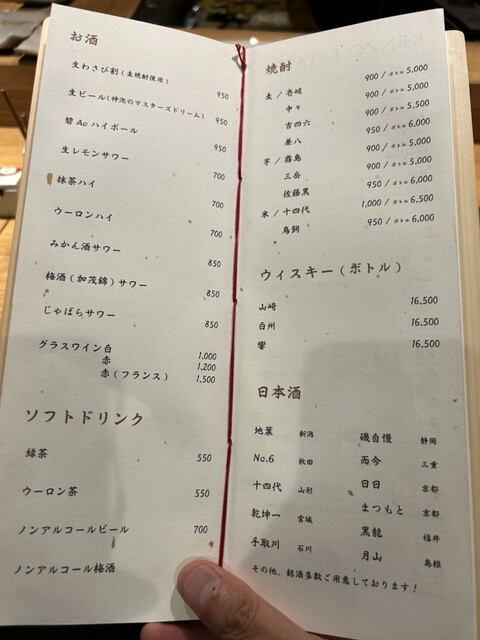 お酒
生わさび割(麦焼酎使用) 950
生ビール(神泡のマスターズドリーム) 950
碧Aoハイボール 950
生レモンサワー 700
抹茶ハイ 700
ウーロンハイ 700
みかん酒サワー 850
梅酒(加茂錦)サワー 850
じゃばらサワー 850
グラスワイン白 1,000
赤 1,200
赤(フランス) 1,500
ソフトドリンク
緑茶 550
ウーロン茶 550
ノンアルコールビール 700
ノンアルコール梅酒
焼酎
麦 / 壱岐 900 / ボトル 5,000
中々 900 / ボトル 5,000
吉四六 900 / ボトル 5,500
兼八 950 / ボトル 6,000
芋 / 霧島 900 / ボトル 5,000
三岳 900 / ボトル 5,000
佐藤黒 950 / ボトル 6,000
米 / 十四代 1,000 / ボトル 6,500
鳥飼 950 / ボトル 6,000
ウィスキー(ボトル)
山崎 16,500
白州 16,500
響 16,500
日本酒
地葉 新潟
No.6 秋田
十四代 山形
乾坤一 宮城
手取川 石川
磯自慢 静岡
而今 三重
日日 京都
まつもと 京都
黒龍 福井
月山 島根
その他、銘酒多数ご用意しております!